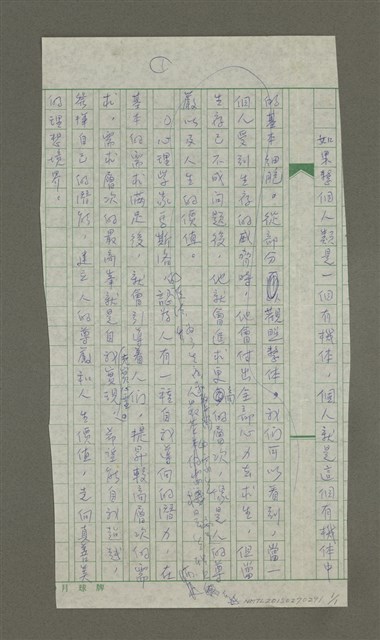 如果整個人類是一個有機体，個人就是這個有機体中
的基本細胞。從部分觀照整体。我們可以看到，當一
個人受到生存的威脅時，他會付出全部心力去求生，但當
生存已不成問題後，他就會追求更高的層次，像是人的尊
嚴以及人生的價值。
心理學家馬斯洛認為人有一種自我導向的潛力，在
基本的需求滿足後，就會引導著人們，提昇較高層次的需
求，需求層次的最高峯就是自我實現，希望能自我超越，
發揮自己的潛能，建立人的尊嚴和人生價值，走向真善美
的理想境界。
月 牌
NMTL20150270271 1/1